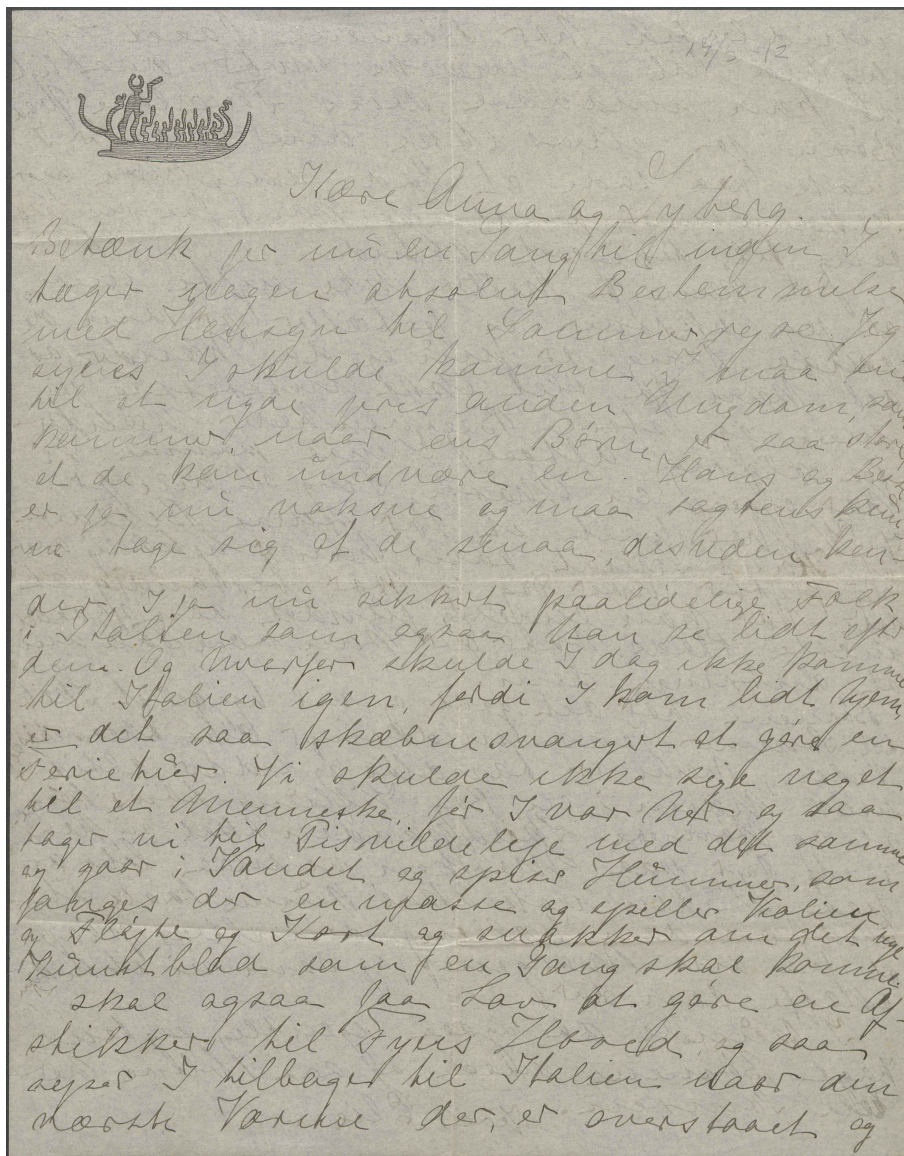 Kære Anna og Syberg.
Betænk jer nu en Gang til inden I
tager nogen absolut Bestemmelse
med Hensyn til Sommerrejse Jeg
synes I skulde komme. I maa
til at nyde jeres anden Ungdom, som
kommer naar ens Børn er saa store
at de kan undvære en. Hans og Besse
er jo nu voksne og maa sagtens kun-
ne tage sig af de smaa, desuden ken-
der I jo nu sikkert paalidelige Folk
i Italien som ogsaa kan se lidt efter
dem. Og hvorfor skulde I dog ikke komme
til Italien igen, fordi I kom lidt hjem,
er det saa skæbnesvangert at gøre en
Ferietur. Vi skulde ikke sige noget
til et Menneske, før I var her og saa
tager vi til Tisvildeleje med det samme
og gaar i Vandet og spiser Hummer, som
fanges der en masse og spiller Violin
og Fløjte og Kort og snakker om det nye
Kunstblad som en Gang skal komme.
skal ogsaa faa Lov at gøre en Af-
stikker til Fyns Hoved og saa
rejser I tilbage til Italien naar den
værste Varme der, er overstaaet og